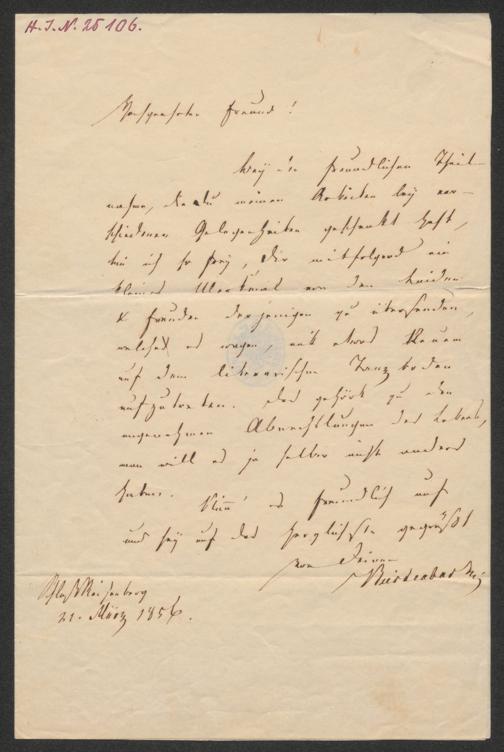 H.I.N. 25106.
Hochgeehrter Freund!
Bey der freundlichen Theil-
nahme, die du meinen Arbeiten bey ver-
schiedenen Gelegenheiten geschenkt hast,
bin ich so frey, dir mitfolgend ein
kleines Merkmal von den Leiden
& Freuden derjenigen zu übersenden,
welche es wagen, mit etwas Neuem
auf dem literarischen Tanzboden
aufzutreten. Das gehört zu den
angenehmen Abwechslungen des Lebens,
man will es ja selber nicht anders
haben.
Nimm' es freundlich auf
und sey auf das herzlichste gegrüßt
von Deinem
Schloß Reisenberg
21. März 1856.